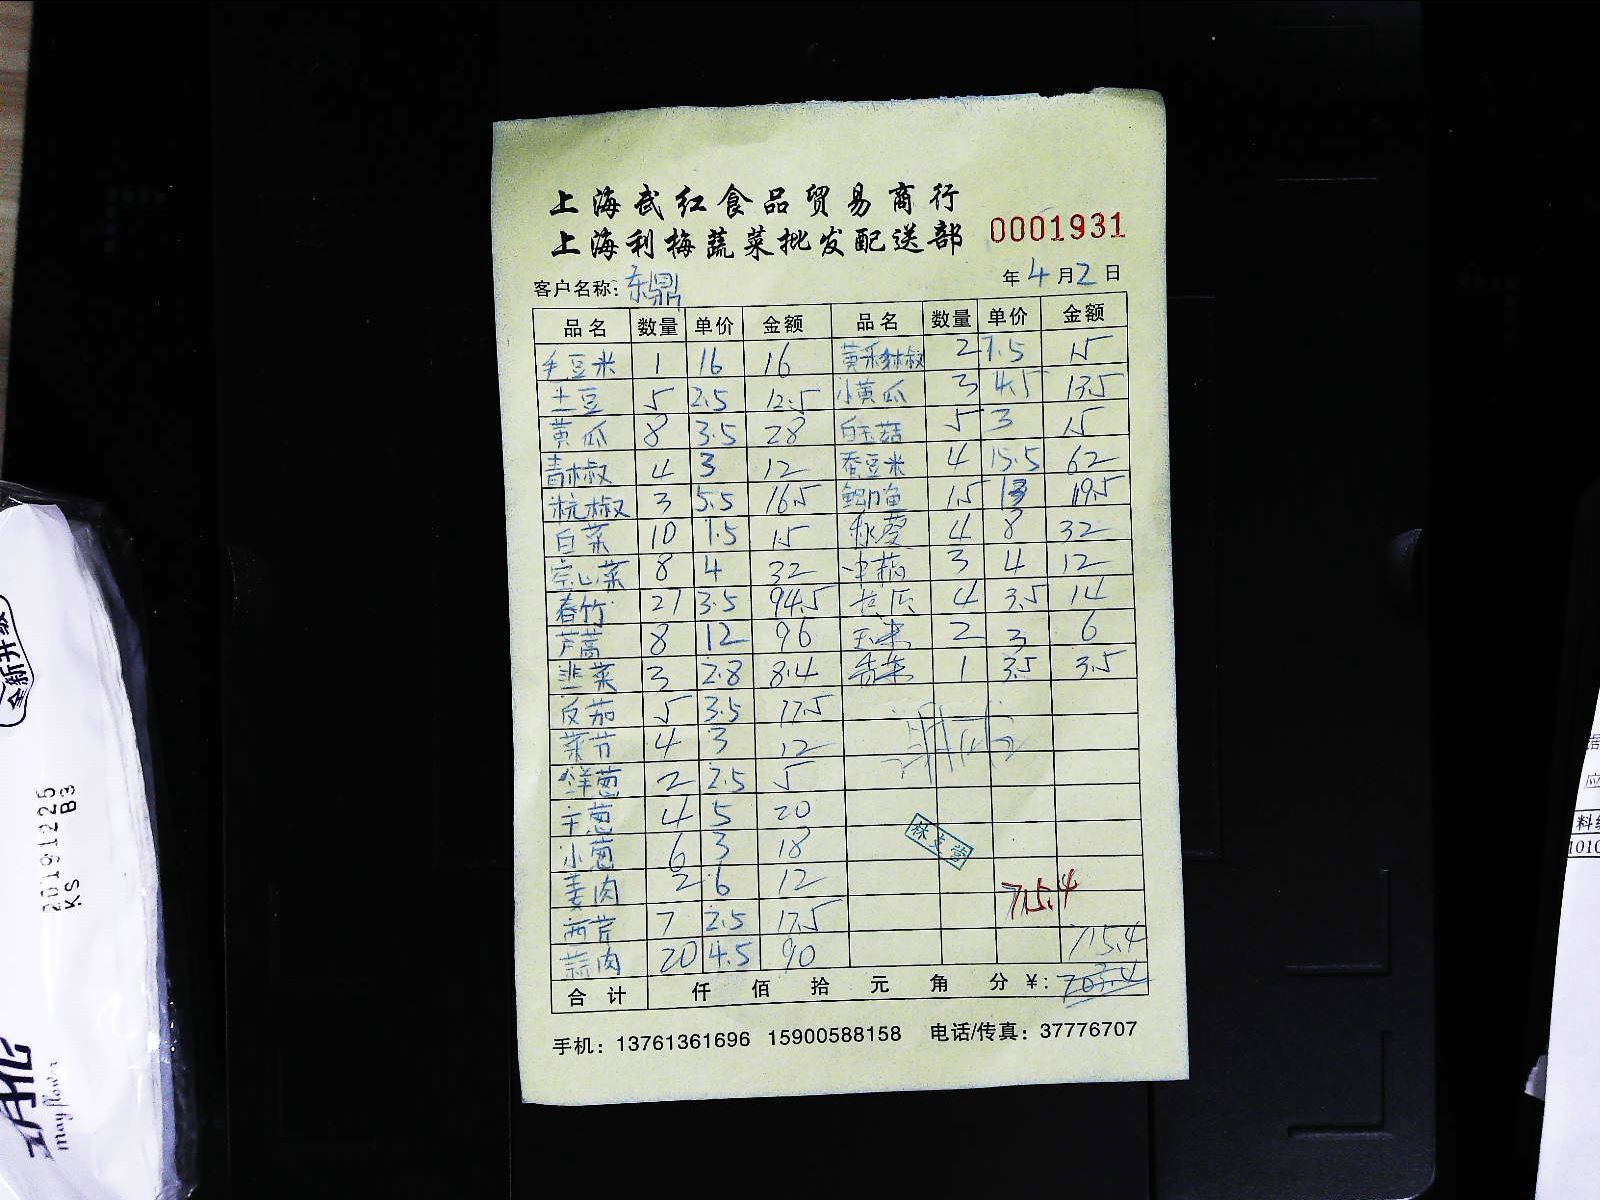 上海武红食品贸易商行
上海利梅蔬菜批发配送部 0001931
客户名称: 东鼎 年 4 月 2 日
品名 数量 单价 金额 品名 数量 单价 金额
毛豆米 1 16 16 黄彩林椒 2 7.5 15
土豆 5 2.5 12.5 小黄瓜 3 4.5 13.5
黄瓜 8 3.5 28 白玉菇 5 3 15
青林椒 4 3 12 蚕豆米 4 15.5 62
杭椒 3 5.5 16.5 1.5 13 19.5
白菜 10 1.5 15 4 8 32
空心菜 8 4 32 3 4 12
春竹 27 3.5 94.5 4 3.5 14
芦蒿 8 12 96 玉米 2 3 6
韭菜 3 2.8 8.4 香菜 1 3.5 3.5
皮茄 5 3.5 17.5
菜节 4 3 12
洋葱 2 2.5 5
干葱 4 5 20
小葱 6 3 18
姜肉 2 6 12
西芹 7 2.5 17.5
蒜肉 20 4.5 90
715.4
715.4
合计 仟 佰 拾 元 角 分 ¥: 703.4
手机: 13761361696 15900588158 电话/传真: 37776707
全新升级
20191225
KS B3
May flower
料
1010